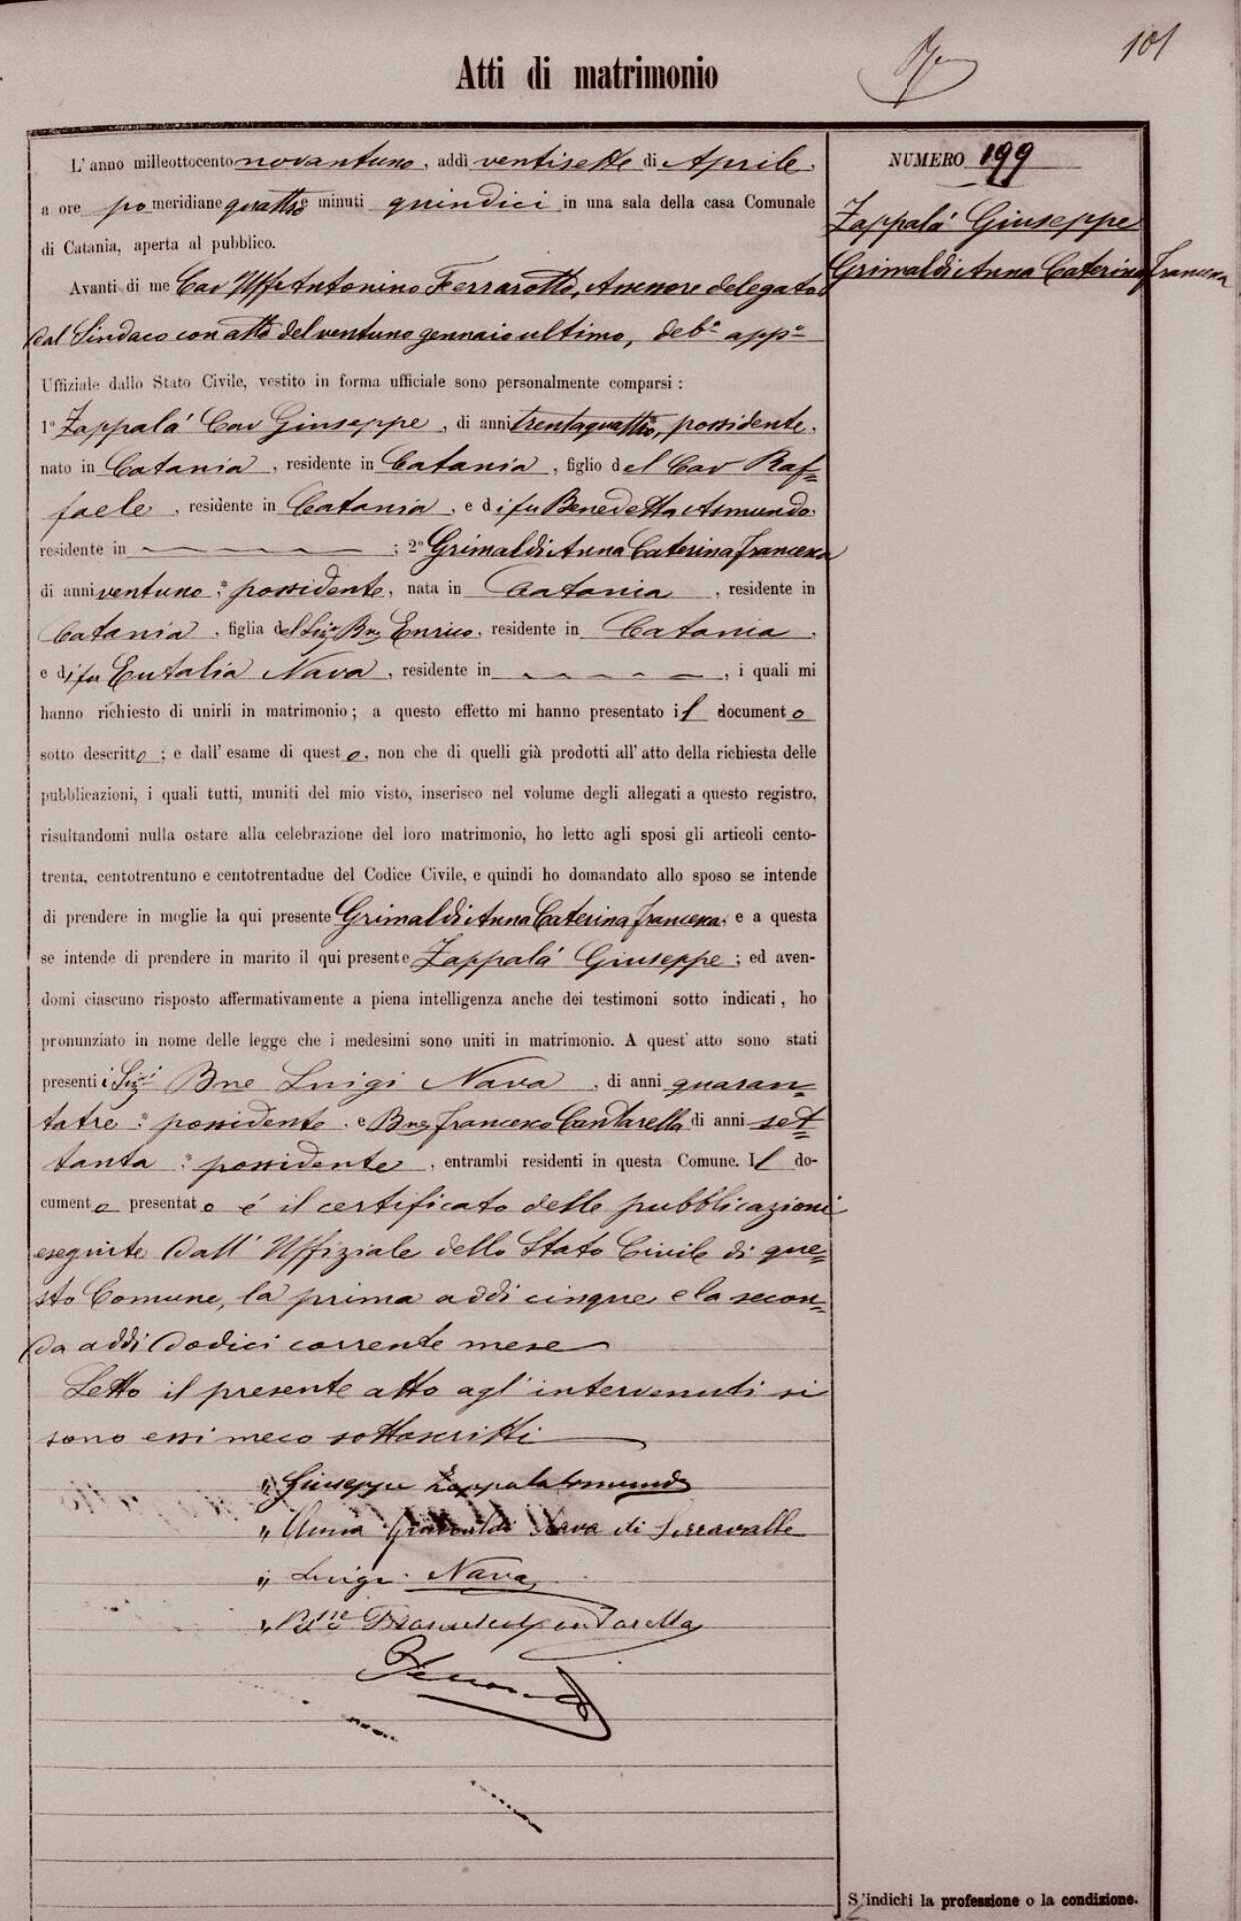 101
Atti di matrimonio
NUMERO 199
Zappalá Giuseppe
Grimaldi Anna Caterina Francesca
L' anno milleottocento novantuno, addì ventisette di Aprile,
a ore pomeridiane quattro e minuti quindici in una sala della casa Comunale
di Catania, aperta al pubblico.
Avanti di me Cav Uff Antonino Ferrarotto, Assessore delegato
dal Sindaco con atto del ventuno gennaio ultimo, deb.e app.o
Uffiziale dallo Stato Civile, vestito in forma ufficiale sono personalmente comparsi :
1° Zappalá Cav Giuseppe, di anni trentaquattro, possidente,
nato in Catania, residente in Catania, figlio del Cav Raf=
faele, residente in Catania, e di fu Benedetta Asmundo,
residente in ; 2° Grimaldi Anna Caterina Francesca
di anni ventuno :* possidente, nata in Catania, residente in
Catania, figlia del Sig.r Bne Enrico, residente in Catania,
e di fu Eutalia Nava, residente in , i quali mi
hanno richiesto di unirli in matrimonio ; a questo effetto mi hanno presentato il documento
sotto descritto ; e dall' esame di questo, non che di quelli già prodotti all' atto della richiesta delle
pubblicazioni, i quali tutti, muniti del mio visto, inserisco nel volume degli allegati a questo registro,
risultandomi nulla ostare alla celebrazione del loro matrimonio, ho letto agli sposi gli articoli cento-
trenta, centotrentuno e centotrentadue del Codice Civile, e quindi ho domandato allo sposo se intende
di prendere in moglie la qui presente Grimaldi Anna Caterina Francesca, e a questa
se intende di prendere in marito il qui presente Zappalá Giuseppe ; ed aven-
domi ciascuno risposto affermativamente a piena intelligenza anche dei testimoni sotto indicati, ho
pronunziato in nome delle legge che i medesimi sono uniti in matrimonio. A quest' atto sono stati
presenti i Sig.ri Bne Luigi Nava, di anni quaran=
tatre :* possidente, e Bne Francesco Cantarella di anni set=
tanta :* possidente, entrambi residenti in questa Comune. Il do-
cumento presentato é il certificato delle pubblicazioni
eseguite dall' Uffiziale dello Stato Civile di que=
sto Comune, la prima addi cinque e la secon=
da addi dodici corrente mese
Letto il presente atto agl' intervenuti si
sono essi meco sottoscritti
" Giuseppe Zappala Asmundo
" Anna Grimaldi Nava di Serravalle
" Luigi Nava
" Bne Francesco Cantarella
S'indichi la professione o la condizione.